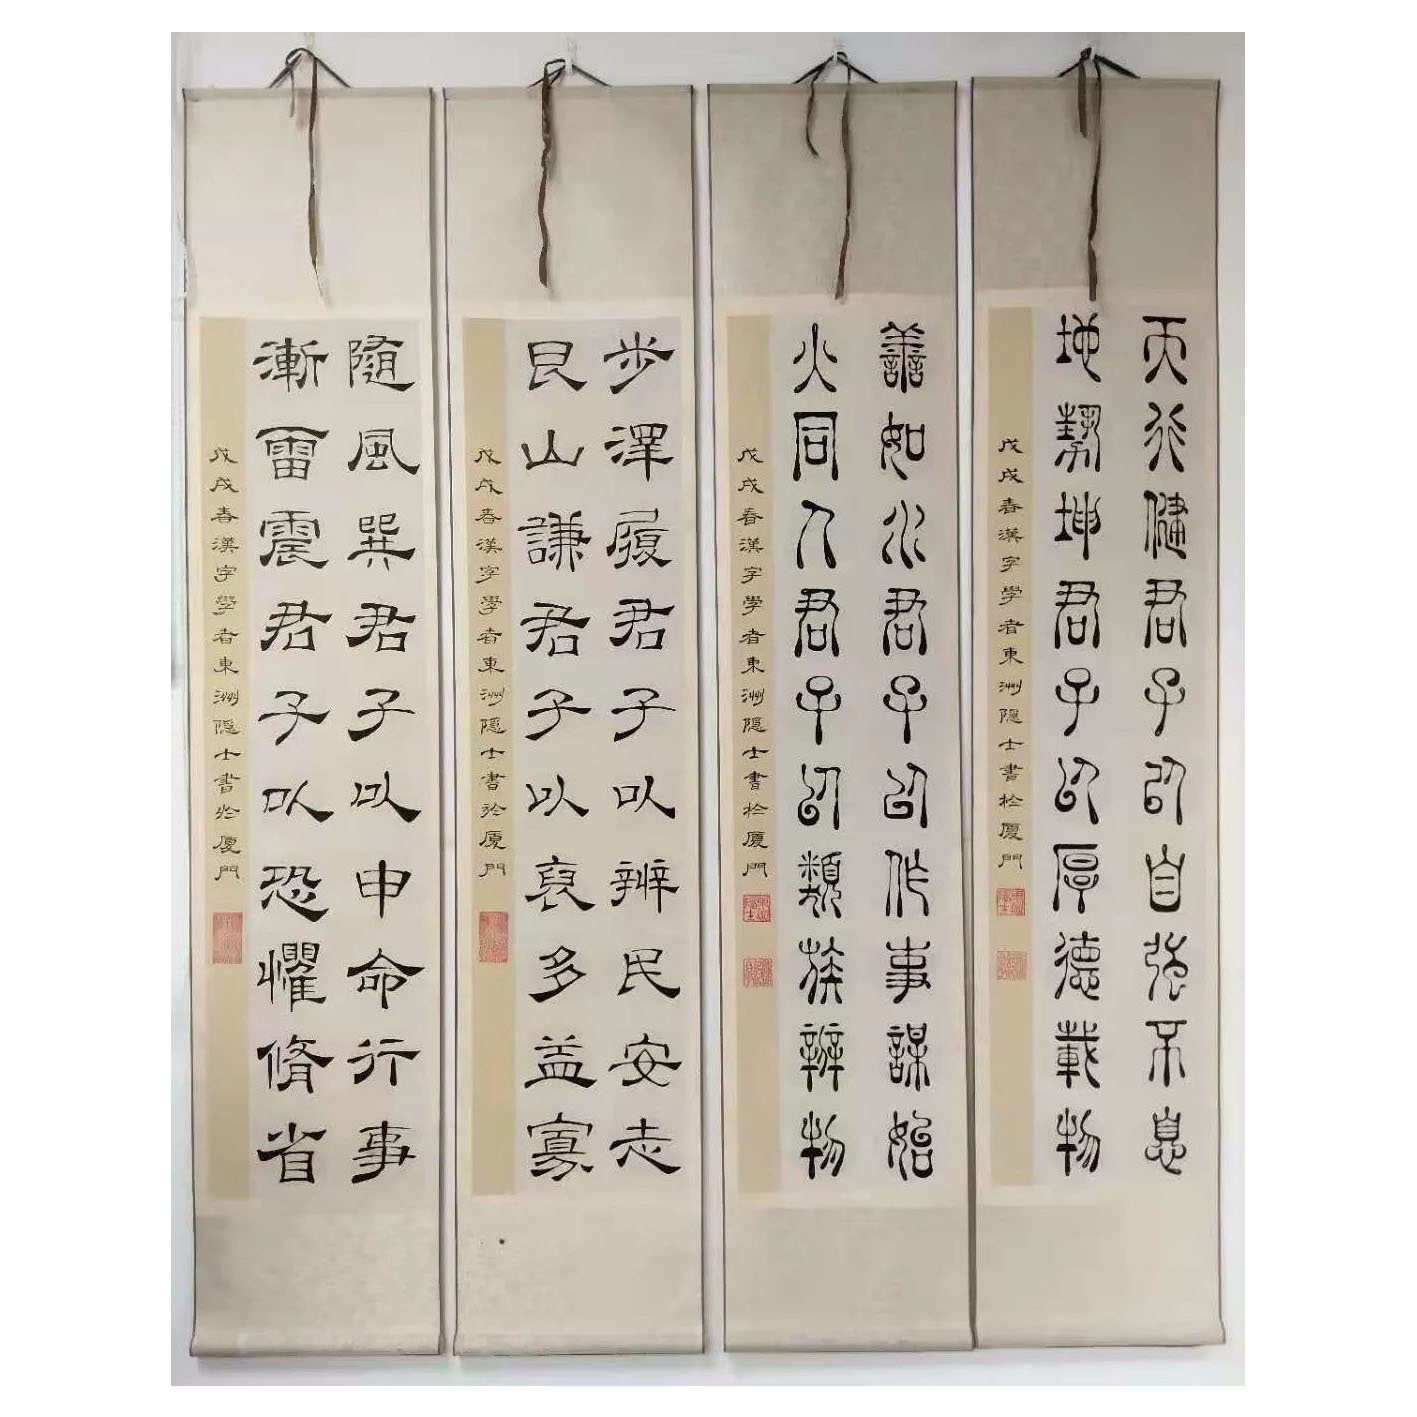 天行健君子以自强不息
地勢坤君子以厚德載物
戊戌春漢字學者東洲隐士書於厦門
善如水君子以作事謀始
火同人君子以類族辨物
戊戌春漢字學者東洲隐士書於厦門
步澤履君子以辨民安志
艮山謙君子以裒多益寡
戊戌春漢字學者東洲隐士書於厦門
隨風巽君子以申命行事
漸雷震君子以恐懼脩省
戊戌春漢字學者東洲隐士書於厦門